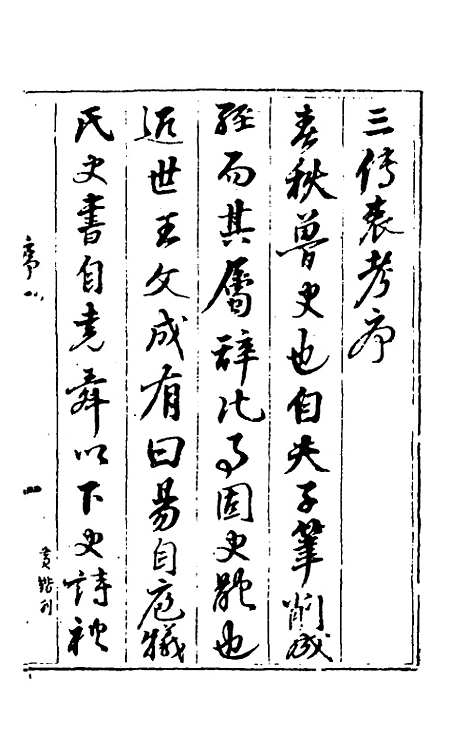 三傳衷考序
春秋魯史也自夫子筆削成
經而其屬辭比事固史體也
近世王文成有曰易自庖犧
氏史書自堯舜以下史詩禮
序
一
黃鍇刊